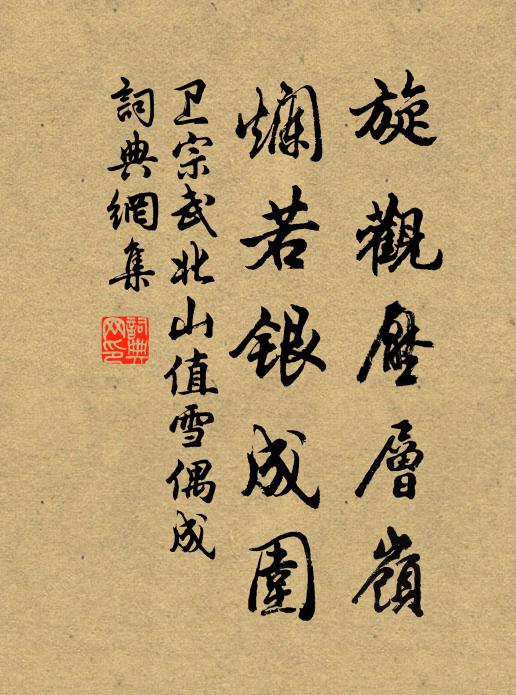 旋觀壓層嶺
爛若銀成圍
卫宗武北山值雪偶成
詞典網集
詞典網印